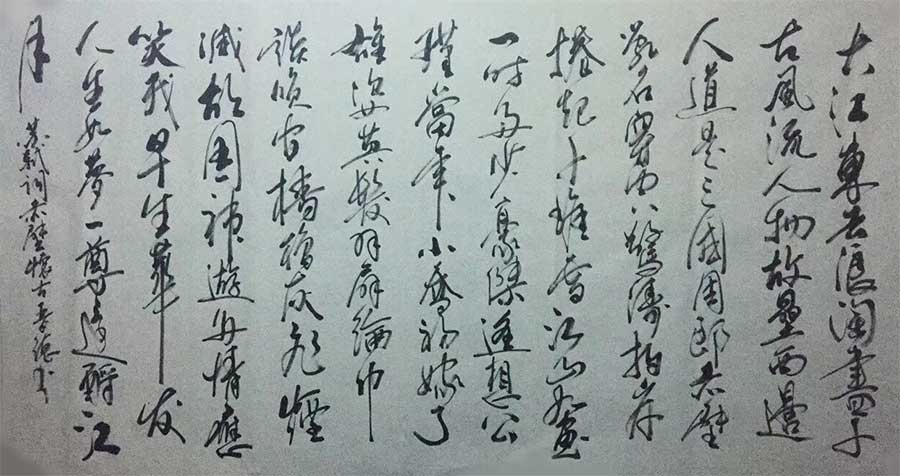 大江東去浪淘盡千
古風流人物故壘西邊
人道是三國周郎赤壁
亂石驚濤拍岸
捲起千堆雪江山如畫
一時多少豪傑遙想公
瑾當年小喬初嫁了
雄姿英發羽扇綸巾
談笑間檣櫓灰飛煙
滅故國神遊多情應
笑我早生華发
人生如夢一尊還酹江
月
蘇軾詞赤壁懷古書